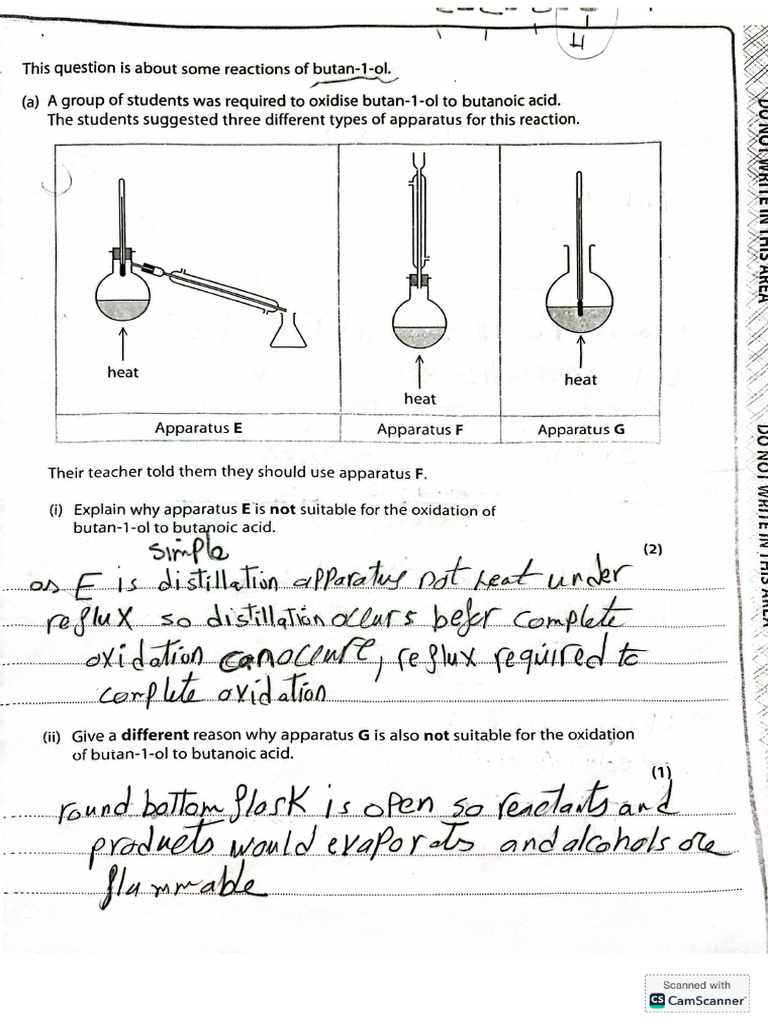 H
This question is about some reactions of butan-1-ol.
(a) A group of students was required to oxidise butan-1-ol to butanoic acid.
The students suggested three different types of apparatus for this reaction.
heat
heat
heat
Apparatus E
Apparatus F
Apparatus G
Their teacher told them they should use apparatus F.
(i) Explain why apparatus E is not suitable for the oxidation of
butan-1-ol to butanoic acid.
(2)
simple
as E is distillation apparatus not heat under
reflux so distillation occurs befor complete
oxidation can occure, reflux required to
complete oxidation
(ii) Give a different reason why apparatus G is also not suitable for the oxidation
of butan-1-ol to butanoic acid.
(1)
round bottom flask is open so reactants and
products would evaporats and alcohols are
flammable
DO NOT WRITE IN THIS AREA
DO NOT WRITE IN THIS AREA
Scanned with
CS CamScanner